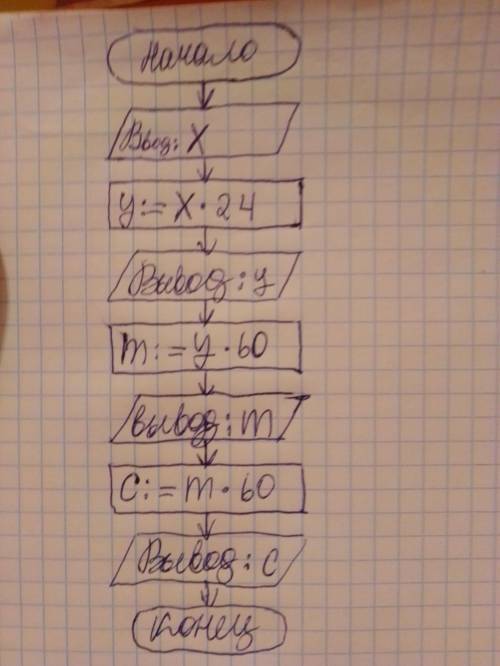 Начало
Ввод: X
y:= X · 24
Вывод: y
m:= y · 60
вывод: m
C:= m · 60
Вывод: c
конец